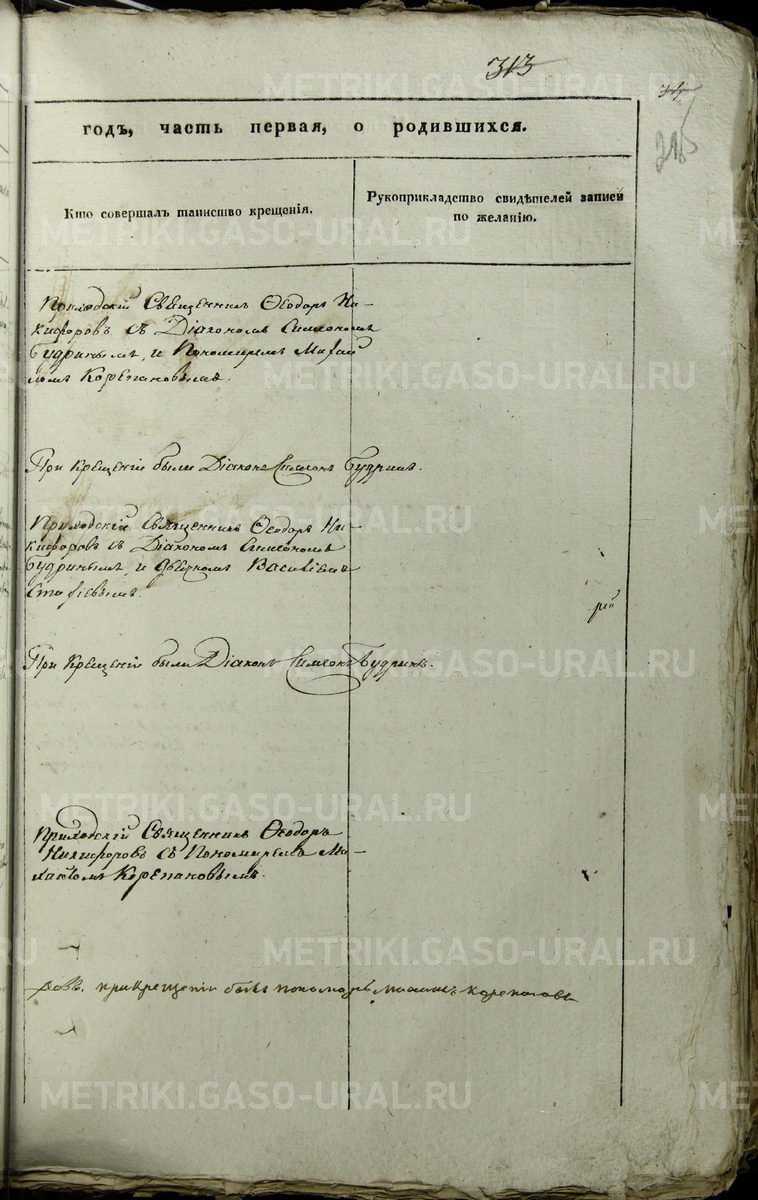 313
годъ, часть первая, о родившихся.
Кто совершалъ таинство крещенія.
Рукоприкладство свидѣтелей записи
по желанію.
Приходскій Священникъ Ѳеодоръ Ни-
кифоровъ съ Діакономъ Симеономъ
Будринымъ, и Пономаремъ Михаи
ломъ Корепановымъ.
При Крещеніи были Діаконъ Симеонъ Будринъ.
Приходскій Священникъ Ѳеодоръ Ни-
кифоровъ съ Діакономъ Симеономъ
Будринымъ, и Василіемъ
При Крещеніи были Діаконъ Симеонъ Будринъ.
Приходскій Священникъ Ѳеодоръ
Никифоровъ съ Пономаремъ Ми-
хаиломъ Корепановымъ.
при Крещеніи былъ пономарь Михаилъ Корепановъ
METRIKI.GASO-URAL.RU